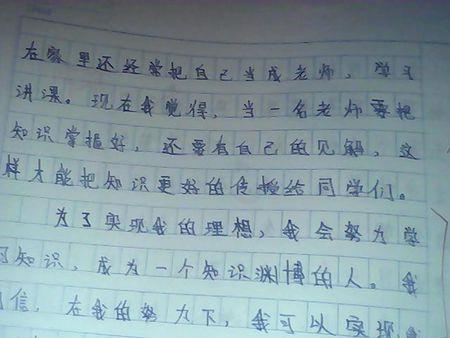 在家里还经常把自己当成老师，学习
讲课。现在我觉得，当一名老师要把
知识掌握好，还要有自己的见解，这
样才能把知识更好的传授给同学们。
为了实现我的理想，我会努力学
习知识，成为一个知识渊博的人。我
信，在我的努力下，我可以实现我